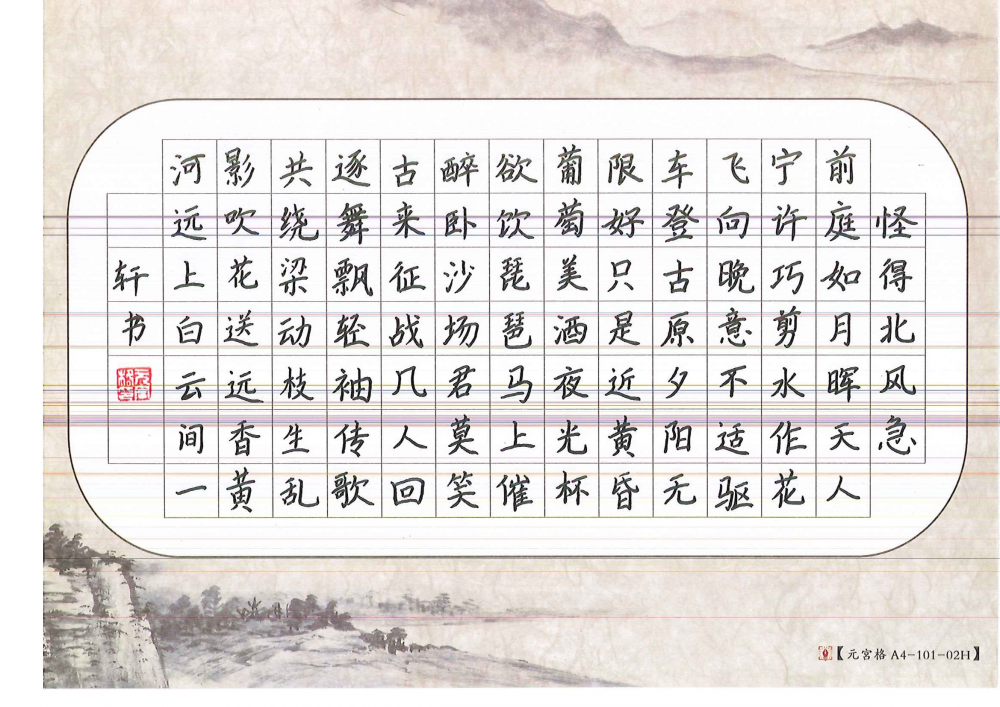 怪得北风急
前庭如月晖天人
宁许巧剪水作花
飞向晚意不适驱
车登古原夕阳无
限好只是近黄昏
葡萄美酒夜光杯
欲饮琵琶马上催
醉卧沙场君莫笑
古来征战几人回
逐舞飘轻袖传歌
共绕梁动枝生乱
影吹花送远香黄
河远上白云间一
轩书
【元宫格 A4-101-02H】